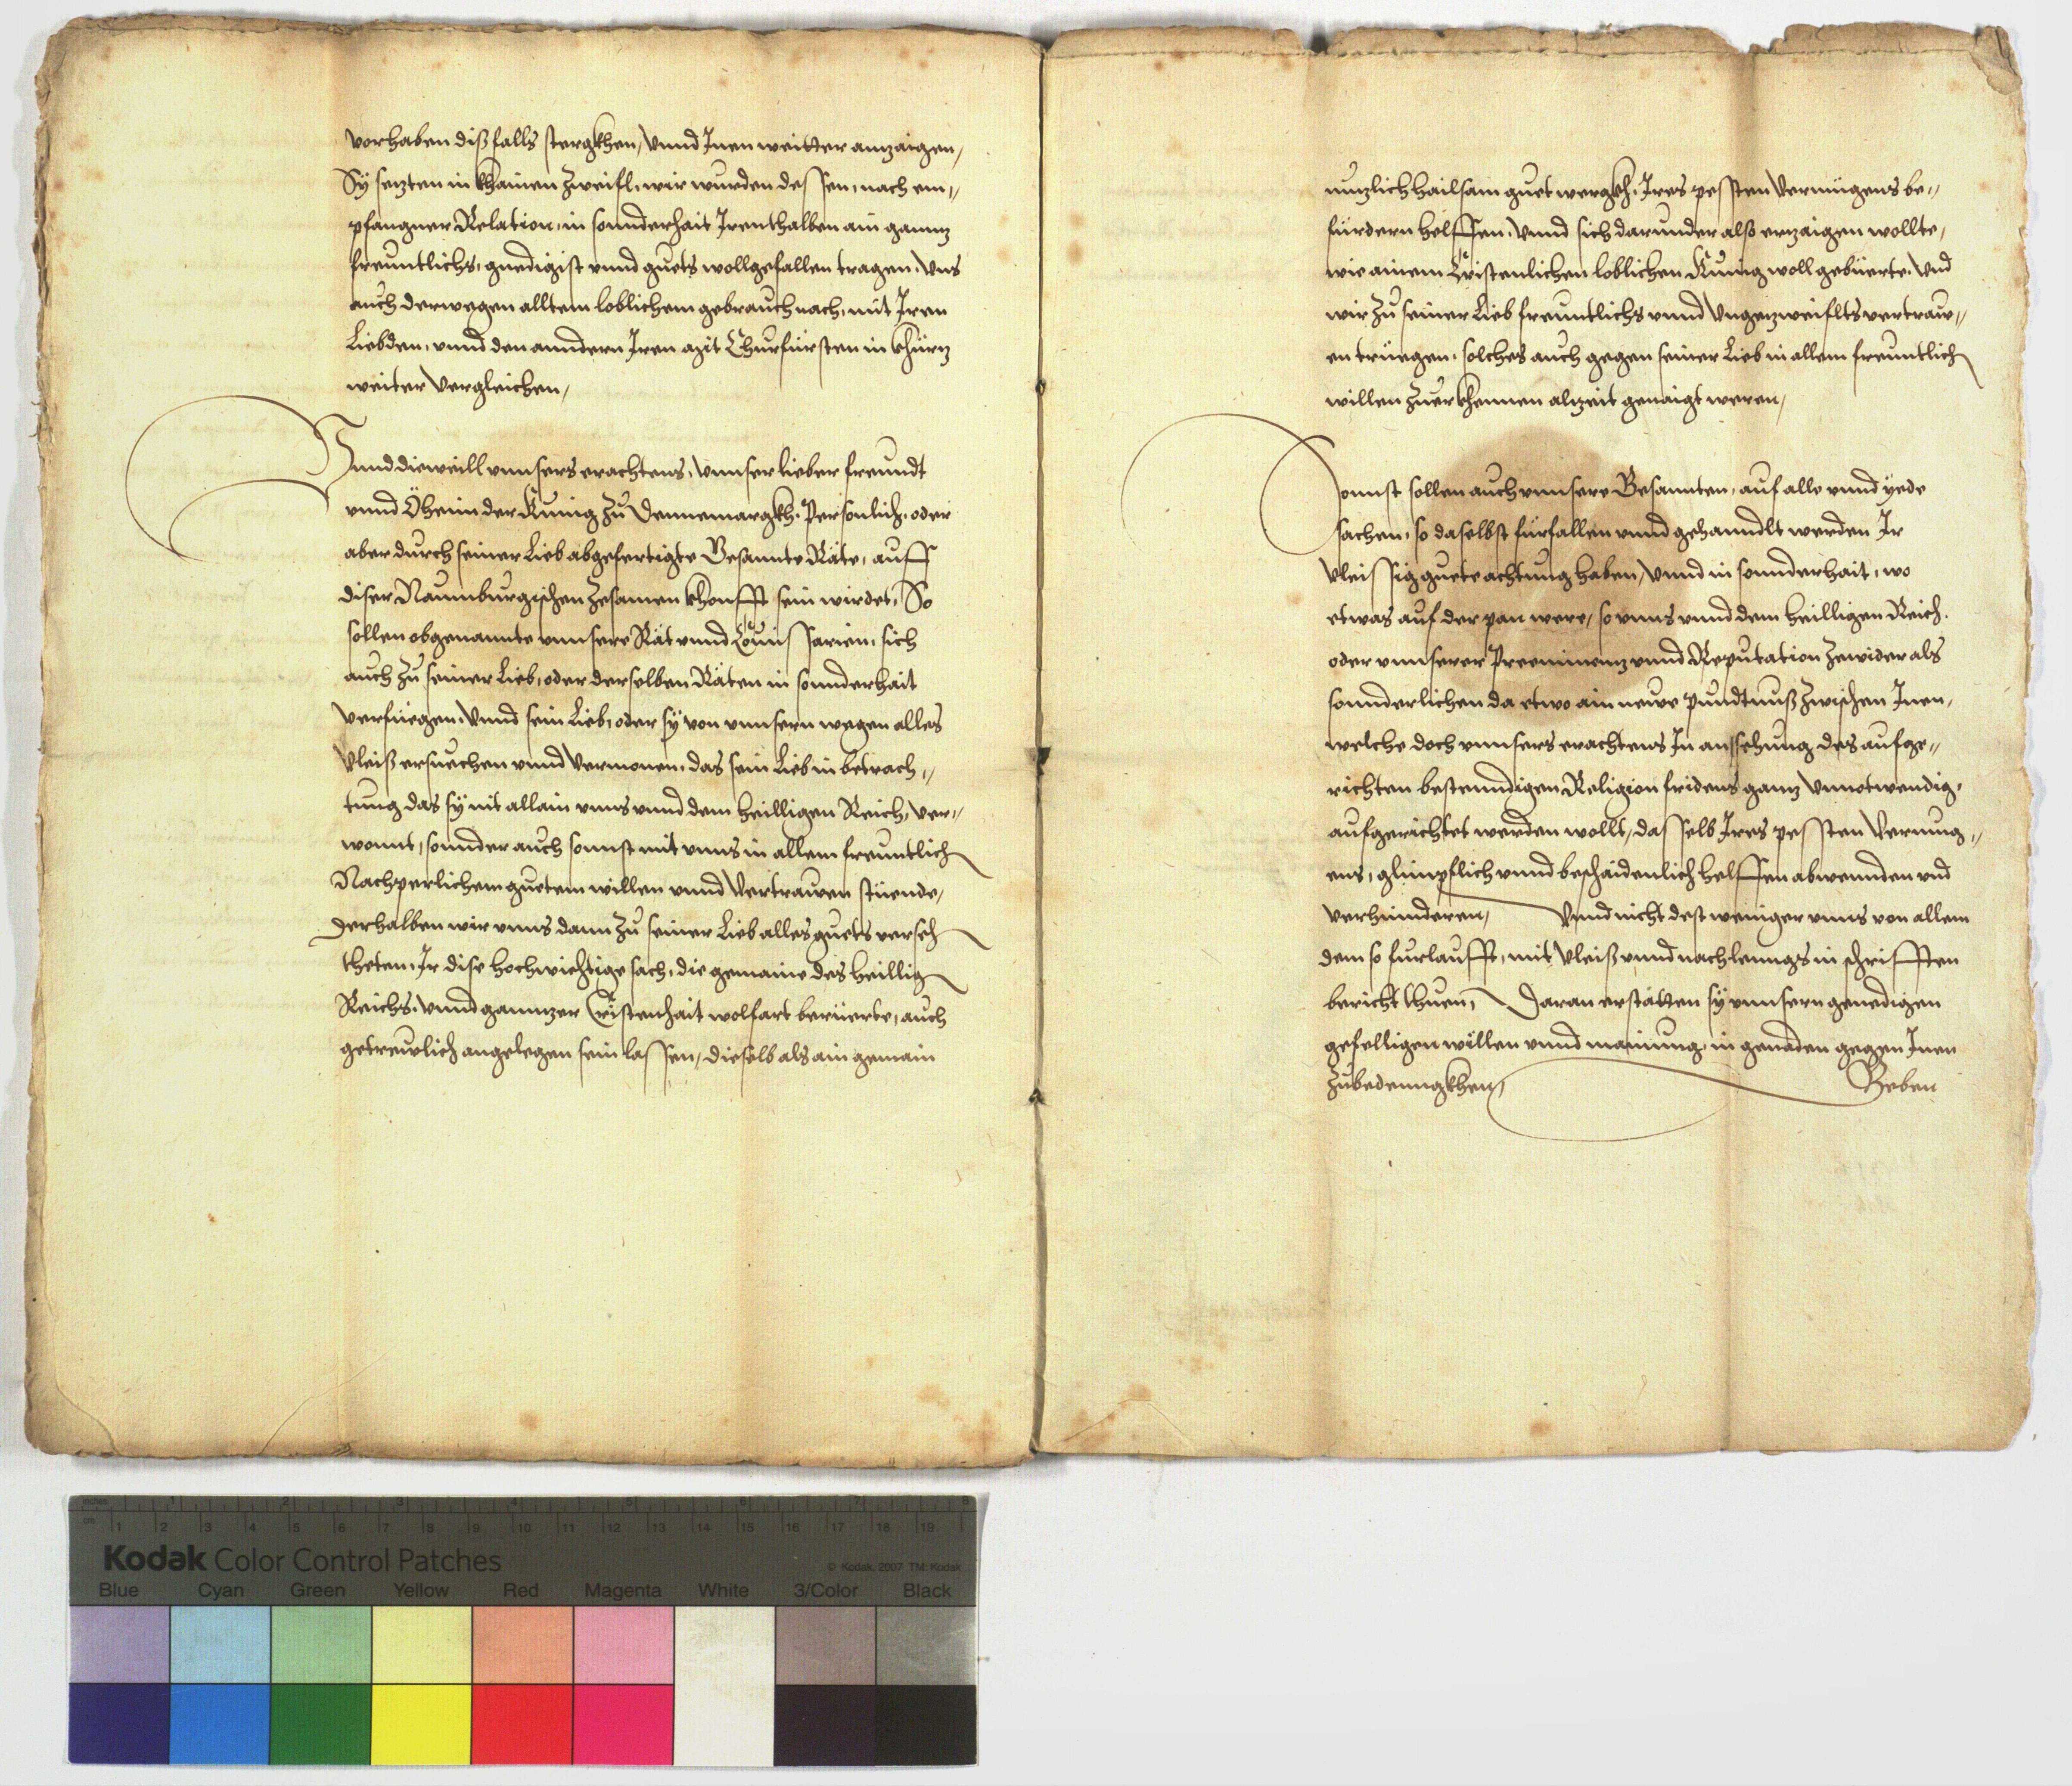 vorhaben dißfalls stergkhen, vnnd Inen weitter anzaigen,
Sÿ setzten in khainen zweifl, wir wurden dessen, nach em„
pfangner Relation, in sonnderhait Irenthalben ain gannz
freuntlichs, gnedigist vnnd guets wollgefallen tragen. Vns
auch derwegen alltem loblichem gebrauch nach, mit Iren
Liebden, vnnd den anndern Iren mit Churfürsten in khürtz
weiter vergleichen,
Vnnd dieweill vnnsers erachtens, vnnser lieber freundt
vnnd Öheim der Kunig zu Dennemargkh. Personlich. oder
aber durch seiner Lieb abgefertigte Gesannte Räte, auff
diser Naumburgischen Zesamenkhonfft sein wirdet, So
sollen obgenannte vnnsere Rät vnnd Comissarien, sich
auch zu seiner Lieb, oder derselben Räten in sonnderhait
verfüegen. Vnnd sein Lieb, oder sÿ von vnnsern wegen alles
Vleiß ersuechen vnnd vermonen, das sein Lieb in betrach„
tung das sÿ nit allain vnns vnnd dem heilligen Reich, ver„
wonnt, sonnder auch sonnst mit vnns in allem freuntlich
Nachperlichem guetem willen vnnd Vertrawen stüende,
Derhalben wir vnns dann zu seiner Lieb alles guets verseh
theten, Ir dise hochwichtige sach, die gemaine des heillig
Reichs. vnnd gannzer Cristenhait wolfart berüerte, auch
getreulich angelegen sein lassen, dieselb als ain gemain
nutzlich hailsam guet wergkh. Ires pessten Vermügens be„
fürdern helffen. Vnnd sich darunder also erzaigen wollte,
wie ainem Cristenlichen loblichen Kunig woll gebüerte. Vnd
wir zu seiner Lieb freuntlichs vnnd Vngezweiflts vertraw„
en trüegen. solches auch gegen seiner Lieb in allem freuntlich
willen zuerkhennen alzeit genaigt weren,
Sonnst sollen auch vnnsere Gesannten, auf alle vnnd ÿede
sachen, so daselbst fürfallen vnnd gehanndlt werden Ir
vleissig guete achtung haben, Vnnd in sonnderhait, wo
etwas auf der pan were, so vnns vnnd dem heilligen Reich.
oder vnnserer Preeminenz vnnd Reputation zewider als
sonnderlichen da etwo ain newe pundtnuß zwischen Inen,
welche doch vnnsers erachtens In ansehung des aufge„
richten bestenndigen Religion fridens ganz Vnnotwendig.
aufgerichtet werden wollt, dasselb Ires pessten Vermug„
ens, glimpflich vnnd beschaidenlich helffen abwennden vnd
verhinderen, Vnnd nicht dest weniger vnns von allem
dem so furlaufft, mit Vleiß vnnd nachlenngs in schrifften
bericht thuen, Daran erstatten sÿ vnnsern genedigen
gefelligen willen vnnd mainung, in genaden gegen Inen
zubedenngkhen, Geben